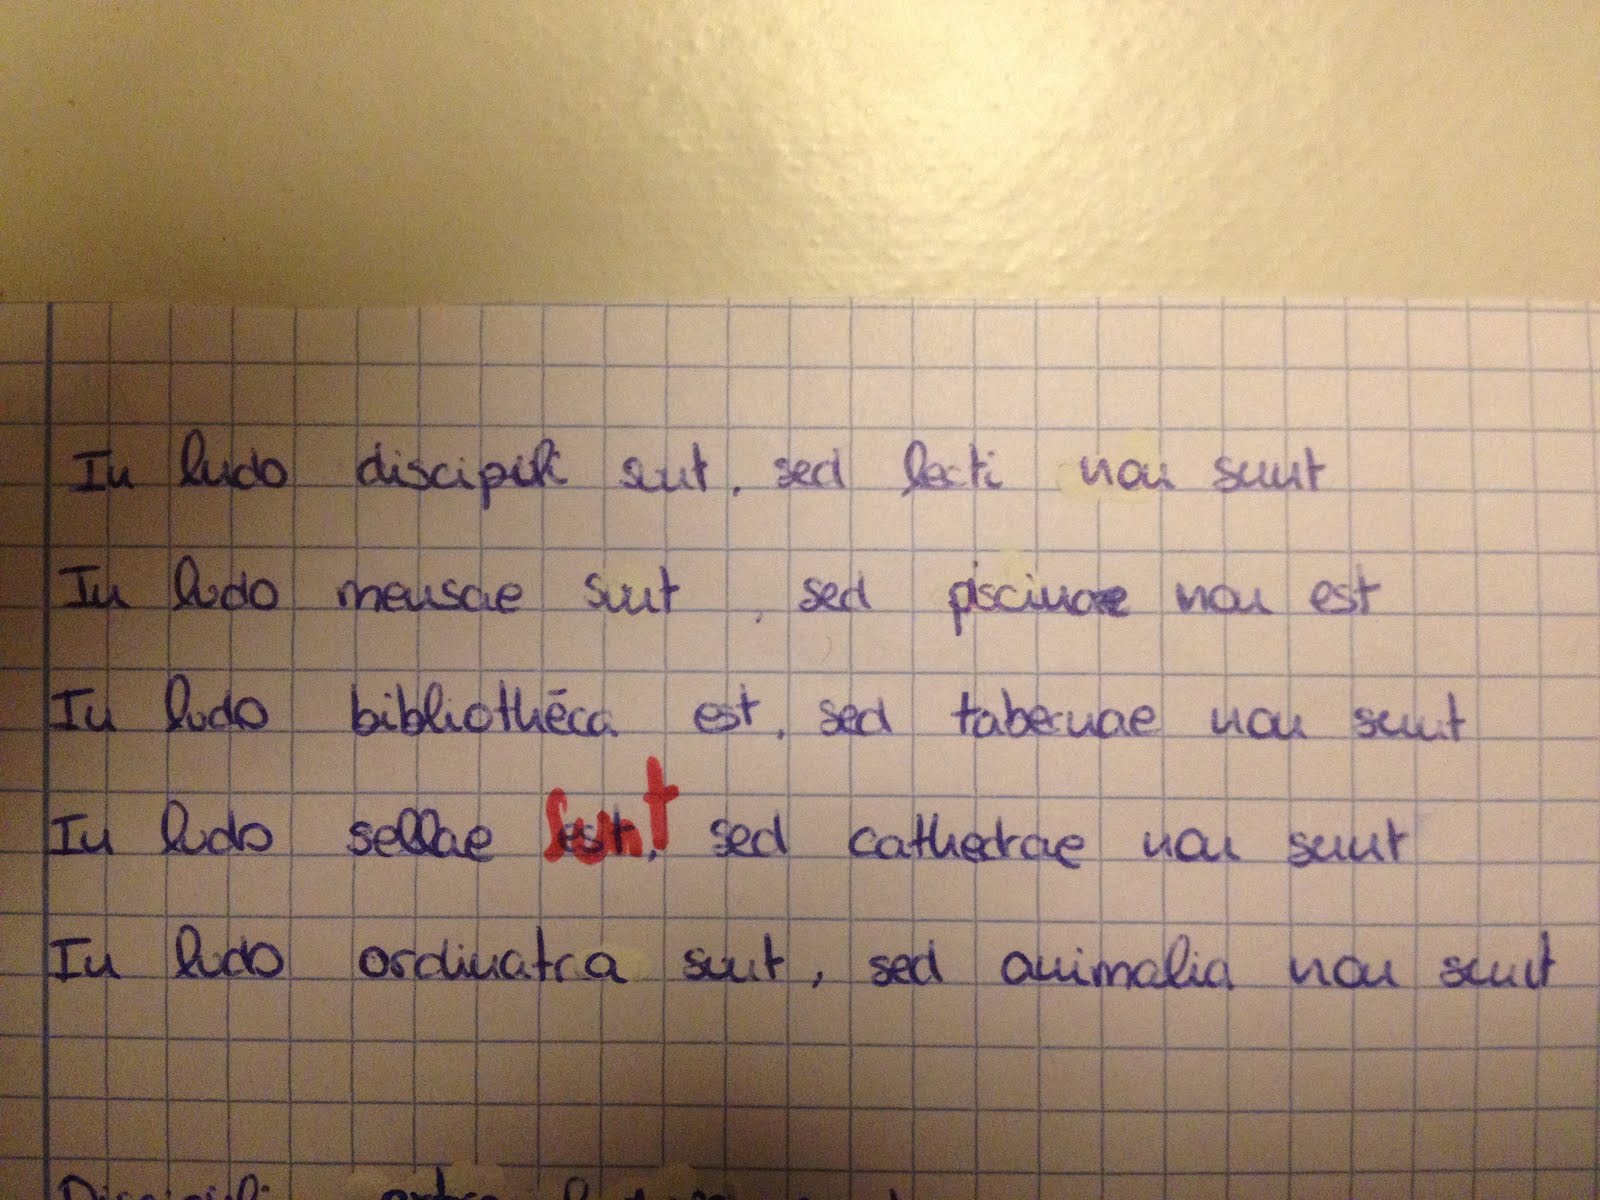 In ludo discipuli sunt, sed lecti non sunt
In ludo mensae sunt, sed piscinae non est
In ludo bibliothēca est, sed tabernae non sunt
In ludo sellae sunt, sed cathedrae non sunt
In ludo ordinatra sunt, sed animalia non sunt
Discipuli extra